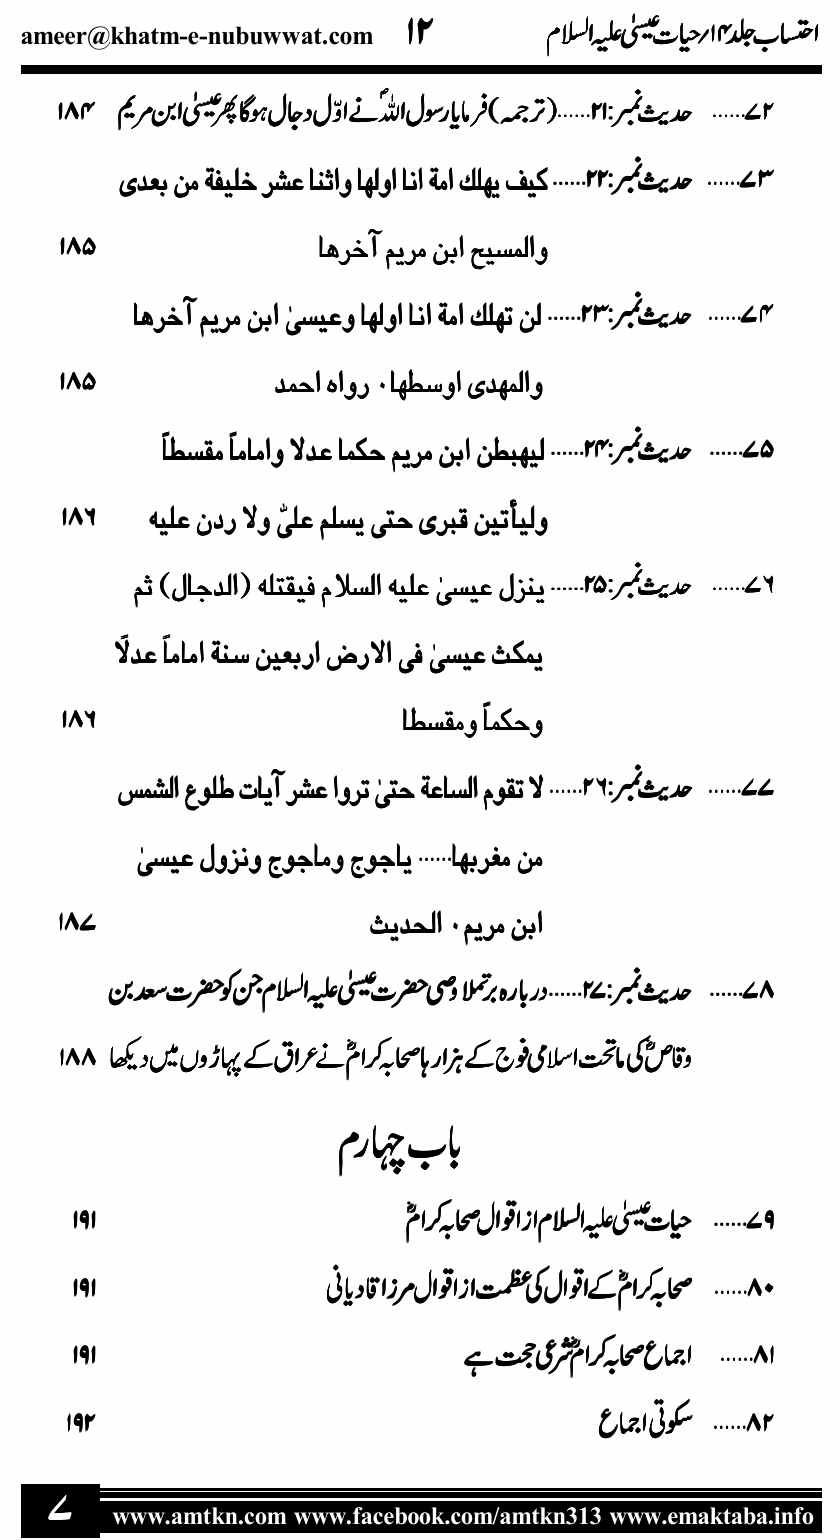 احتساب جلد ۱۴؍حیات عیسیٰ علیہ السلام ۱۲ ameer@khatm-e-nubuwwat.com
۷۲...... حدیث نمبر:۲۱......(ترجمہ) فرمایا رسول اللہؐ نے اوّل دجال ہوگا پھر عیسیٰ ابن مریم ۱۸۴
۷۳...... حدیث نمبر:۲۲...... کیف یهلك امة انا اولها واثنا عشر خلیفة من بعدی
والمسیح ابن مریم آخرها ۱۸۵
۷۴...... حدیث نمبر:۲۳...... لن تهلك امة انا اولها وعیسیٰ ابن مریم آخرها
والمهدی اوسطها۰ رواه احمد ۱۸۵
۷۵...... حدیث نمبر:۲۴...... لیهبطن ابن مریم حکما عدلا واماماً مقسطاً
ولیأتین قبری حتی یسلم علیّ ولا ردن علیه ۱۸۶
۷۶...... حدیث نمبر:۲۵...... ینزل عیسیٰ علیه السلام فیقتله (الدجال) ثم
یمکث عیسیٰ فی الارض اربعین سنة اماماً عدلًا
وحکماً ومقسطا ۱۸۶
۷۷...... حدیث نمبر:۲۶...... لا تقوم الساعة حتیٰ تروا عشر آیات طلوع الشمس
من مغربها...... یاجوج وماجوج ونزول عیسیٰ
ابن مریم۰ الحدیث ۱۸۷
۷۸...... حدیث نمبر:۲۷......درباره برتملا وصی حضرت عیسیٰ علیہ السلام جن کو حضرت سعد بن
وقاصؓ کی ماتحت اسلامی فوج کے ہزارہا صحابہ کرامؓ نے عراق کے پہاڑوں میں دیکھا ۱۸۸
باب چہارم
۷۹...... حیات عیسیٰ علیہ السلام از اقوال صحابہ کرامؓ ۱۹۱
۸۰...... صحابہ کرامؓ کے اقوال کی عظمت از اقوال مرزا قادیانی ۱۹۱
۸۱...... اجماع صحابہ کرامؓ شرعی حجت ہے ۱۹۱
۸۲...... سکوتی اجماع ۱۹۲
۷ www.amtkn.com www.facebook.com/amtkn313 www.emaktaba.info